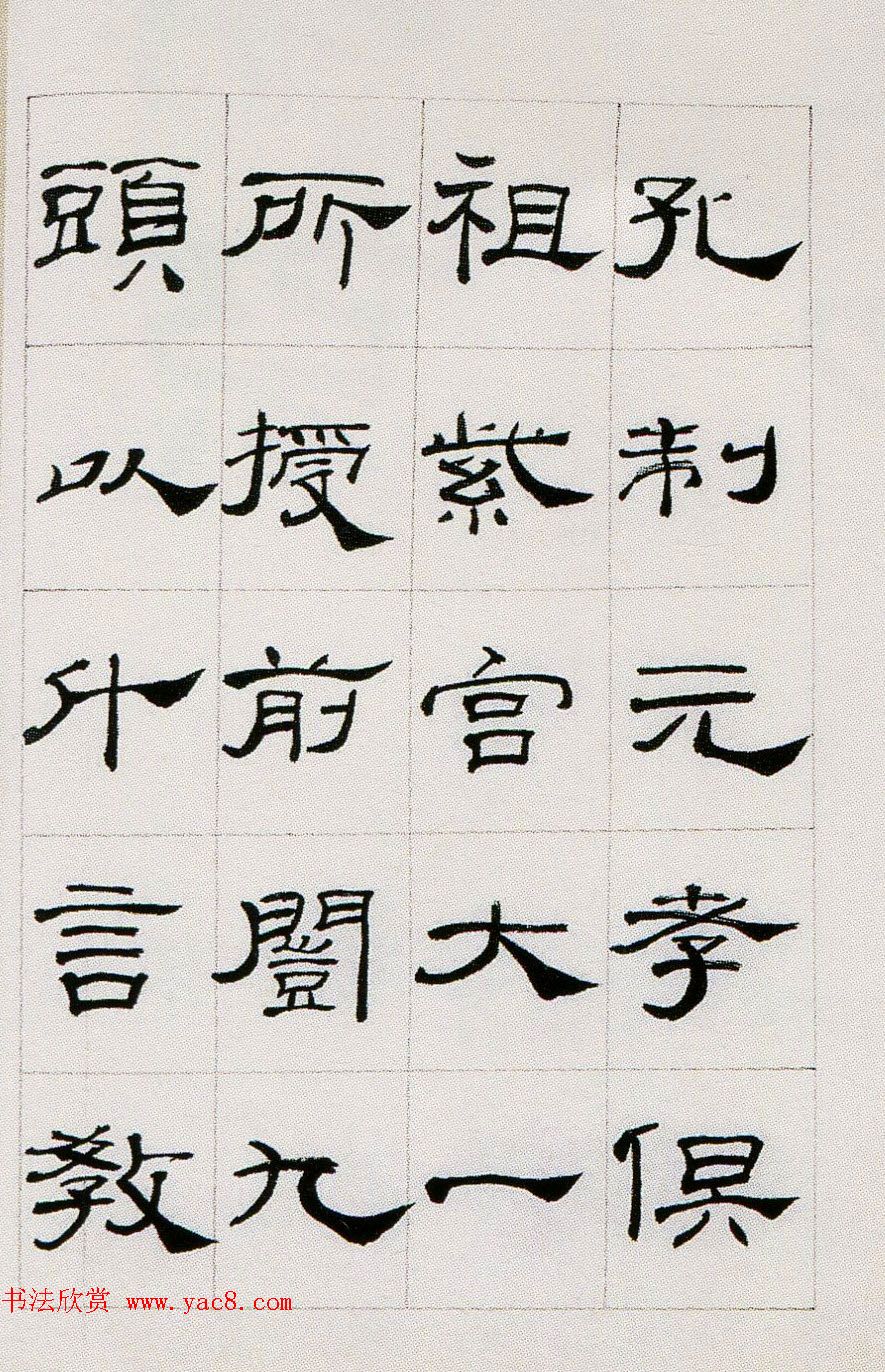 孔制元孝俱
祖紫宮大一
所授前闓九
頭以什言教
书法欣赏 www.yac8.com